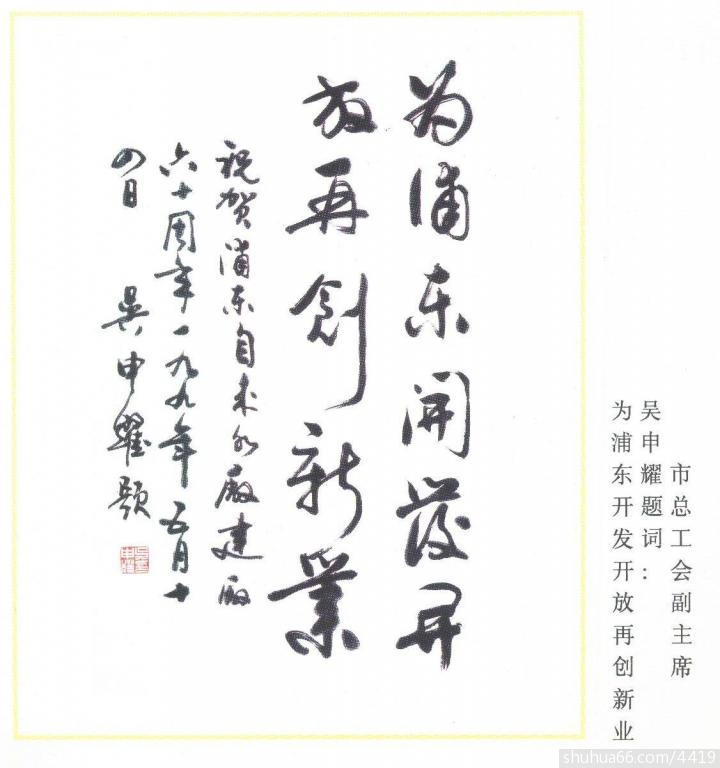 市总工会副主席
吴申耀题词：
为浦东开发开放再创新业
为浦东開發开
放再創新業
祝贺浦东自来水厰建厰
六十周年一九九年五月十
四日 吴申耀题
shuhua66.com/4419